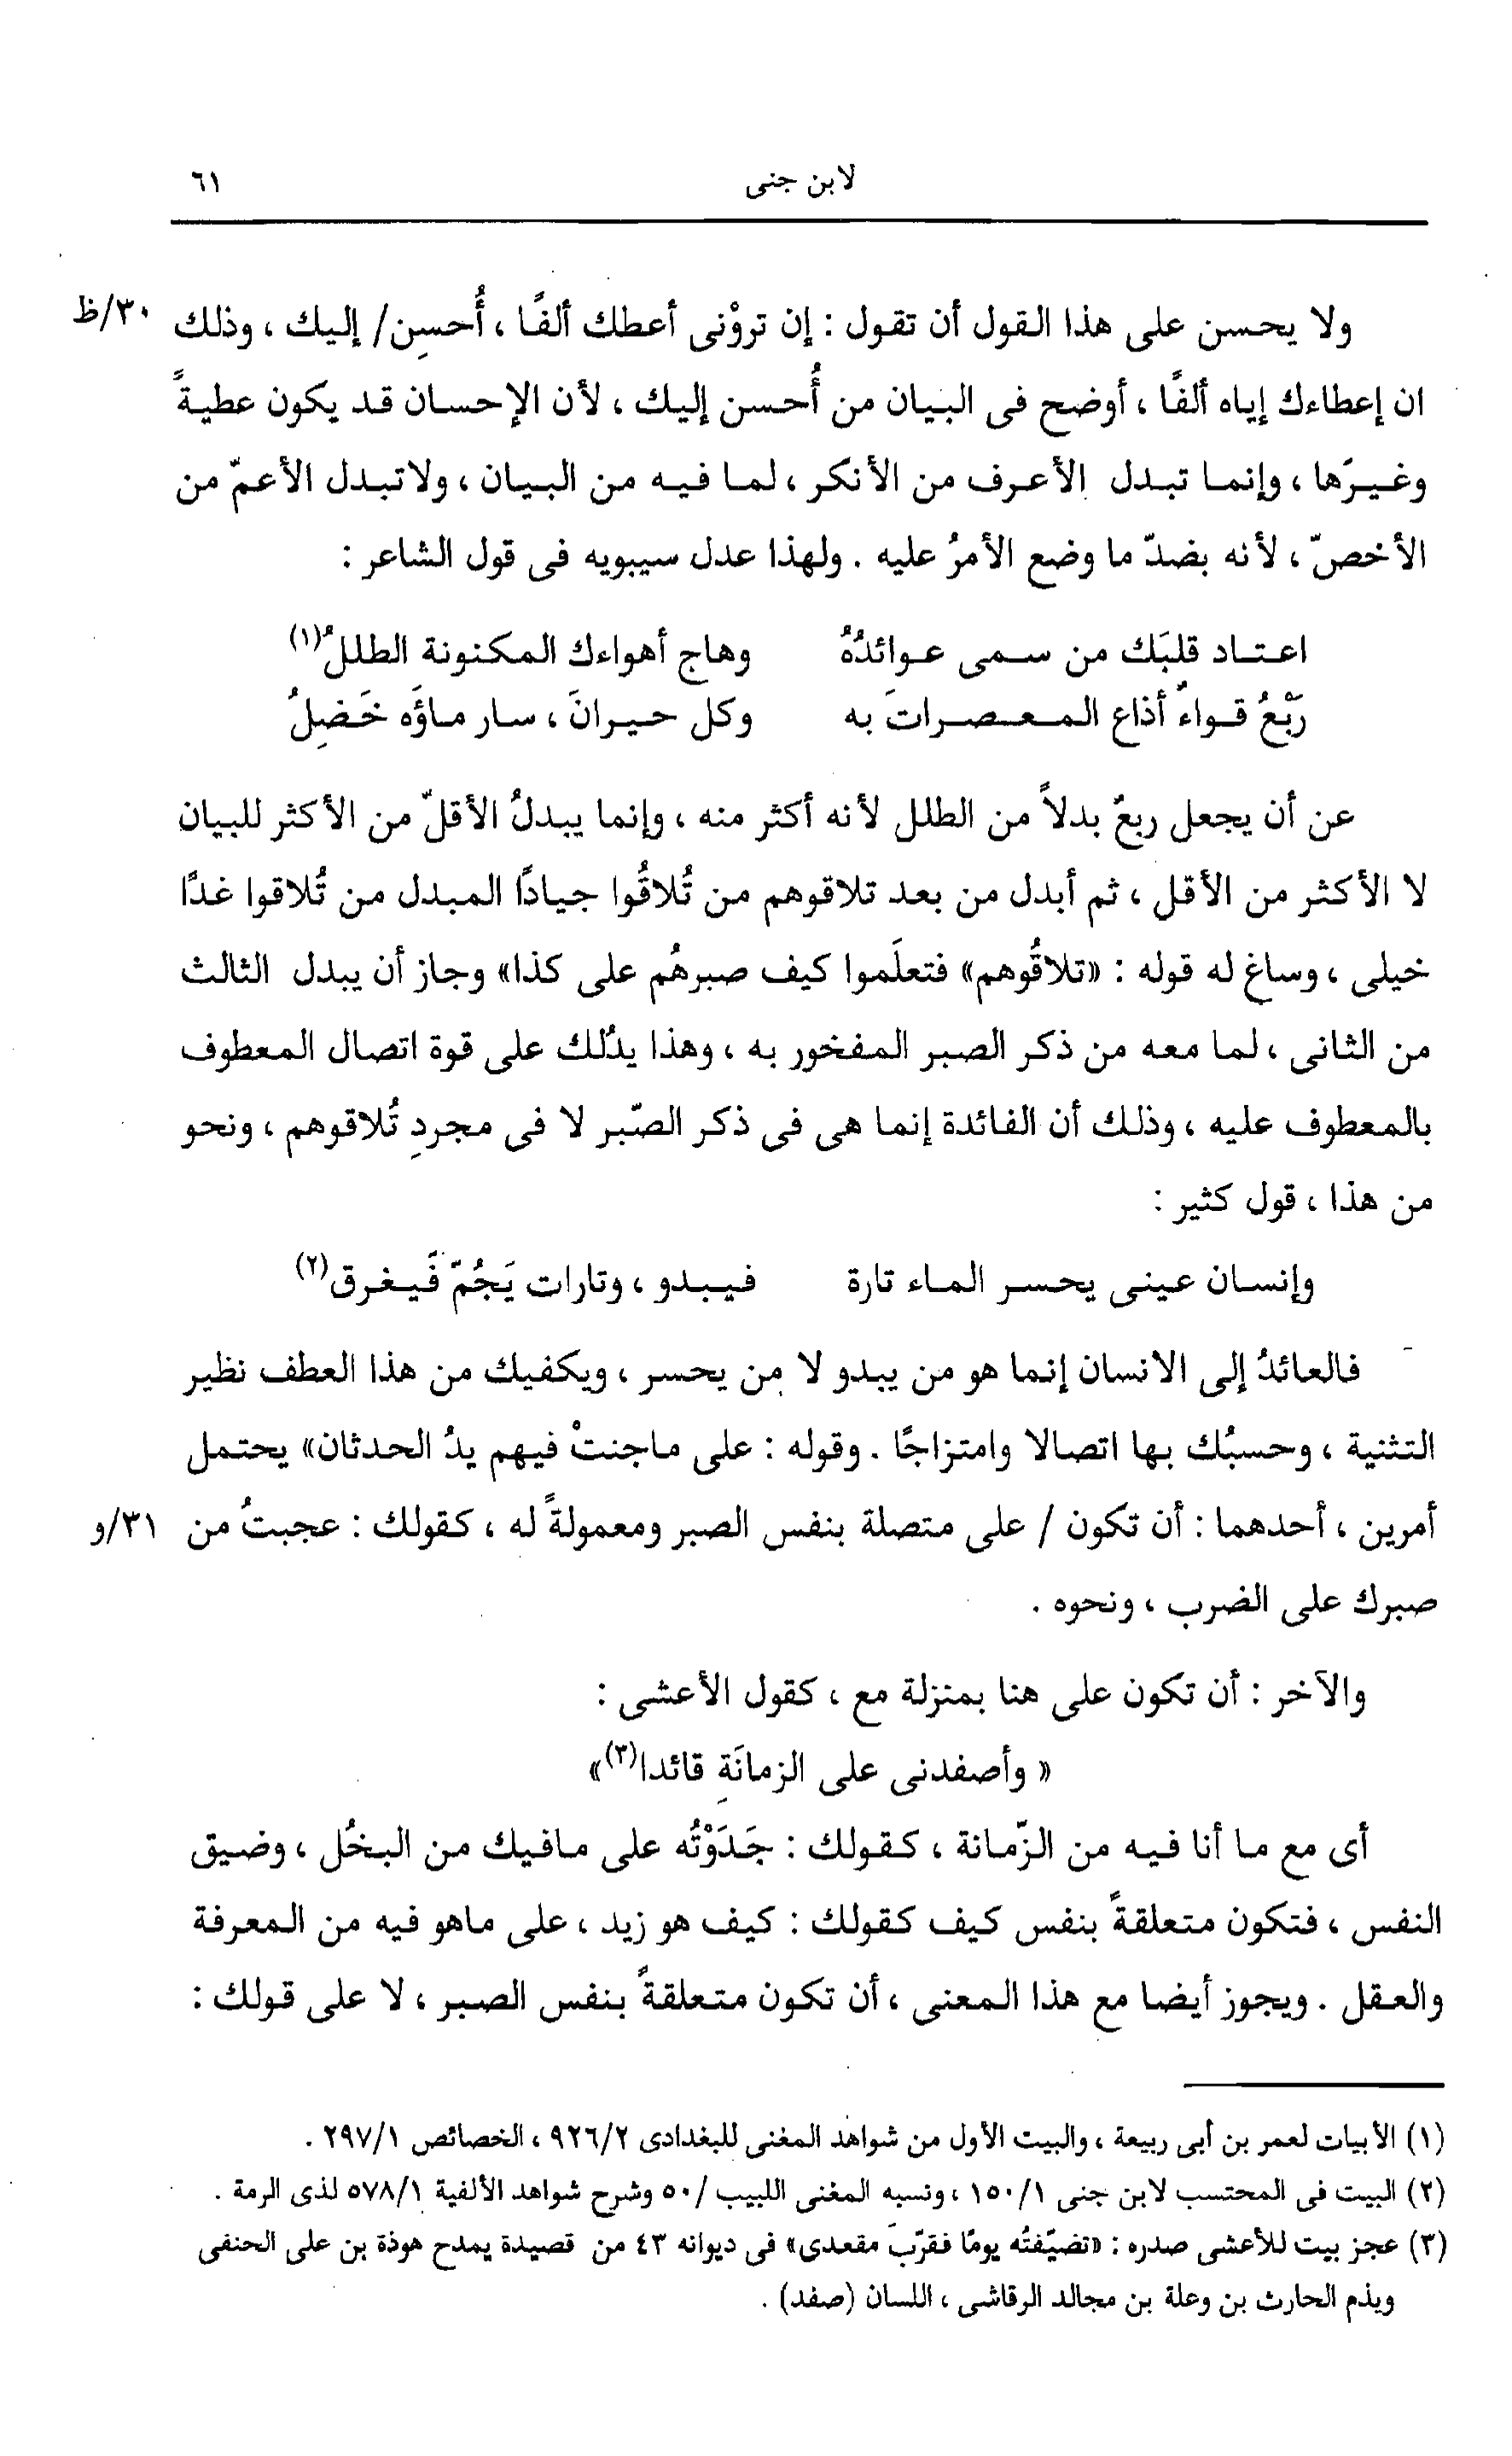 لابن جنى ٦١
ولا يحسن على هذا القول أن تقول : إن تروْنى أعطك ألفًا ، أُحسِن/ إليك ، وذلك ٣٠/ظ
ان إعطاءك إياه ألفًا ، أوضح فى البيان من أُحسن إليك ، لأن الإحسان قد يكون عطيةً
وغيرَها ، وإنما تبدل الأعرف من الأنكر ، لما فيه من البيان ، ولاتبدل الأعمّ من
الأخصّ ، لأنه بضدّ ما وضع الأمرُ عليه . ولهذا عدل سيبويه فى قول الشاعر :
اعتاد قلبَك من سمى عوائدُهُ وهاج أهواءك المكنونة الطللُ(١)
رَبْعُ قواءٌ أذاع المعصراتَ به وكل حيرانَ ، سار ماؤَه خَضِلُ
عن أن يجعل ربعٌ بدلاً من الطلل لأنه أكثر منه ، وإنما يبدلُ الأقلّ من الأكثر للبيان
لا الأكثر من الأقل ، ثم أبدل من بعد تلاقوهم من تُلاقُوا جيادًا المبدل من تُلاقوا غدًا
خيلى ، وساغ له قوله : «تلاقُوهم» فتعلَموا كيف صبرهُم على كذا» وجاز أن يبدل الثالث
من الثانى ، لما معه من ذكر الصبر المفخور به ، وهذا يدُلك على قوة اتصال المعطوف
بالمعطوف عليه ، وذلك أن الفائدة إنما هى فى ذكر الصّبر لا فى مجردِ تُلاقوهم ، ونحو
من هذا ، قول كثير :
وإنسان عينى يحسر الماء تارة فيبدو ، وتارات يَجُمّ فَيغرق(٢)
فالعائدُ إلى الانسان إنما هو من يبدو لا من يحسر ، ويكفيك من هذا العطف نظير
التثنية ، وحسبُك بها اتصالا وامتزاجًا . وقوله : على ماجنتْ فيهم يدُ الحدثان» يحتمل
أمرين ، أحدهما : أن تكون / على متصلة بنفس الصبر ومعمولةً له ، كقولك : عجبتُ من ٣١/و
صبرك على الضرب ، ونحوه .
والآخر : أن تكون على هنا بمنزلة مع ، كقول الأعشى :
« وأصفدنى على الزمانَةِ قائدا(٣)»
أى مع ما أنا فيه من الزّمانة ، كقولك : جَدَوْتُه على مافيك من البخُل ، وضيق
النفس ، فتكون متعلقةً بنفس كيف كقولك : كيف هو زيد ، على ماهو فيه من المعرفة
والعقل . ويجوز أيضا مع هذا المعنى ، أن تكون متعلقةً بنفس الصبر ، لا على قولك :
(١) الأبيات لعمر بن أبى ربيعة ، والبيت الأول من شواهد المغنى للبغدادى ٩٢٦/٢ ، الخصائص ٢٩٧/١ .
(٢) البيت فى المحتسب لابن جنى ١٥٠/١ ، ونسبه المغنى اللبيب /٥٠ وشرح شواهد الألفية ٥٧٨/١ لذى الرمة .
(٣) عجز بيت للأعشى صدره : «تضيّفتُه يومًا فقرّبَ مقعدى» فى ديوانه ٤٣ من قصيدة يمدح هوذة بن على الحنفى
ويذم الحارث بن وعلة بن مجالد الرقاشى ، اللسان (صفد) .